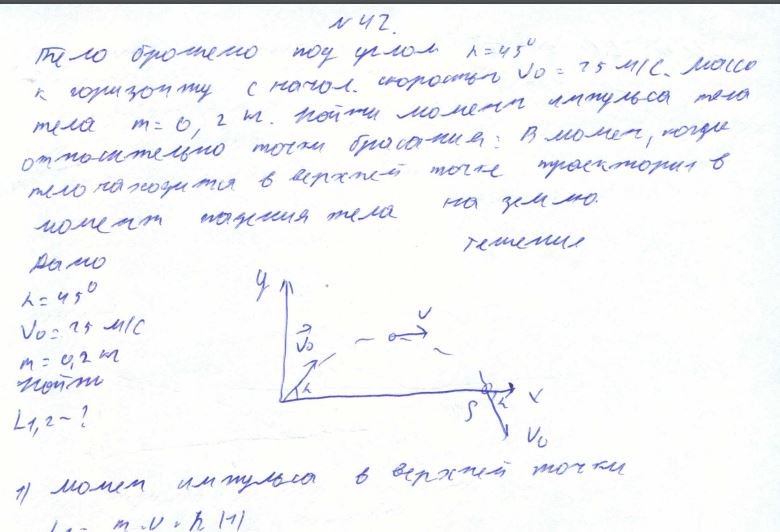 N 42.
Тело брошено под углом α = 45°
к горизонту с начал. скоростью V₀ = 25 м/с. Масса
тела m = 0,2 кг. Найти момент импульса тела
относительно точки бросания: В момен, когда
тело находится в верхней точке траектории в
момент падения тела на землю.
решение
Дано
α = 45°
V₀ = 25 м/с
m = 0,2 кг
Найти
L1,2 - ?
y
V₀
α
V
x
α
V₀
1) момен импульса в верхней точки
m · v · h (1)